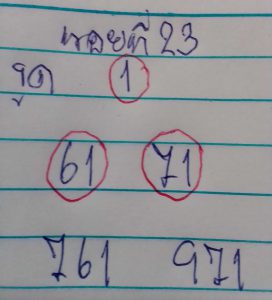 หวยที่ 23
รูด 1
61 71
761 971